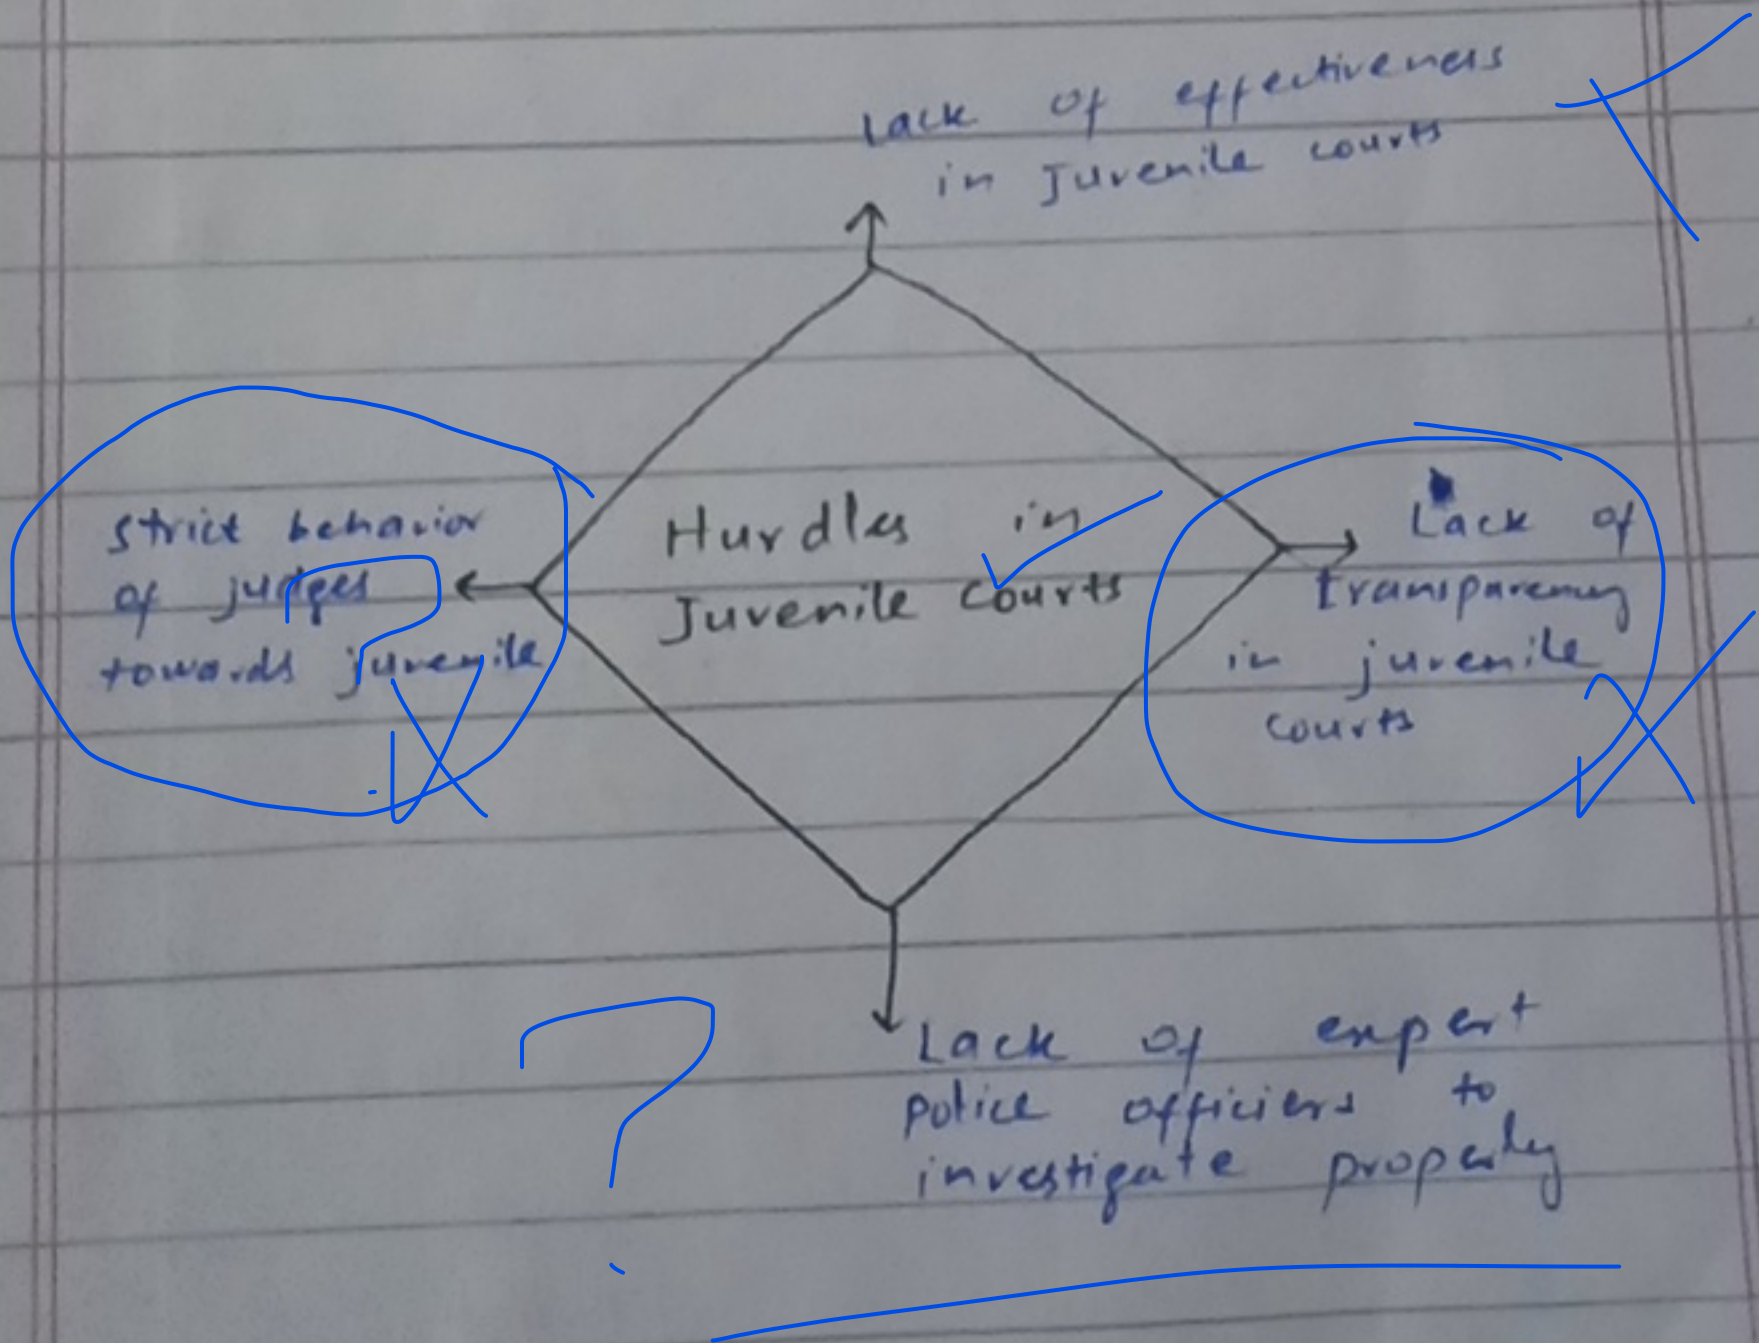 Lack of effectiveness
in Juvenile courts
Strict behavior
of judges
towards juvenile
Hurdles in
Juvenile Courts
Lack of
transparency
in juvenile
courts
Lack of expert
police officiers to
investigate properly